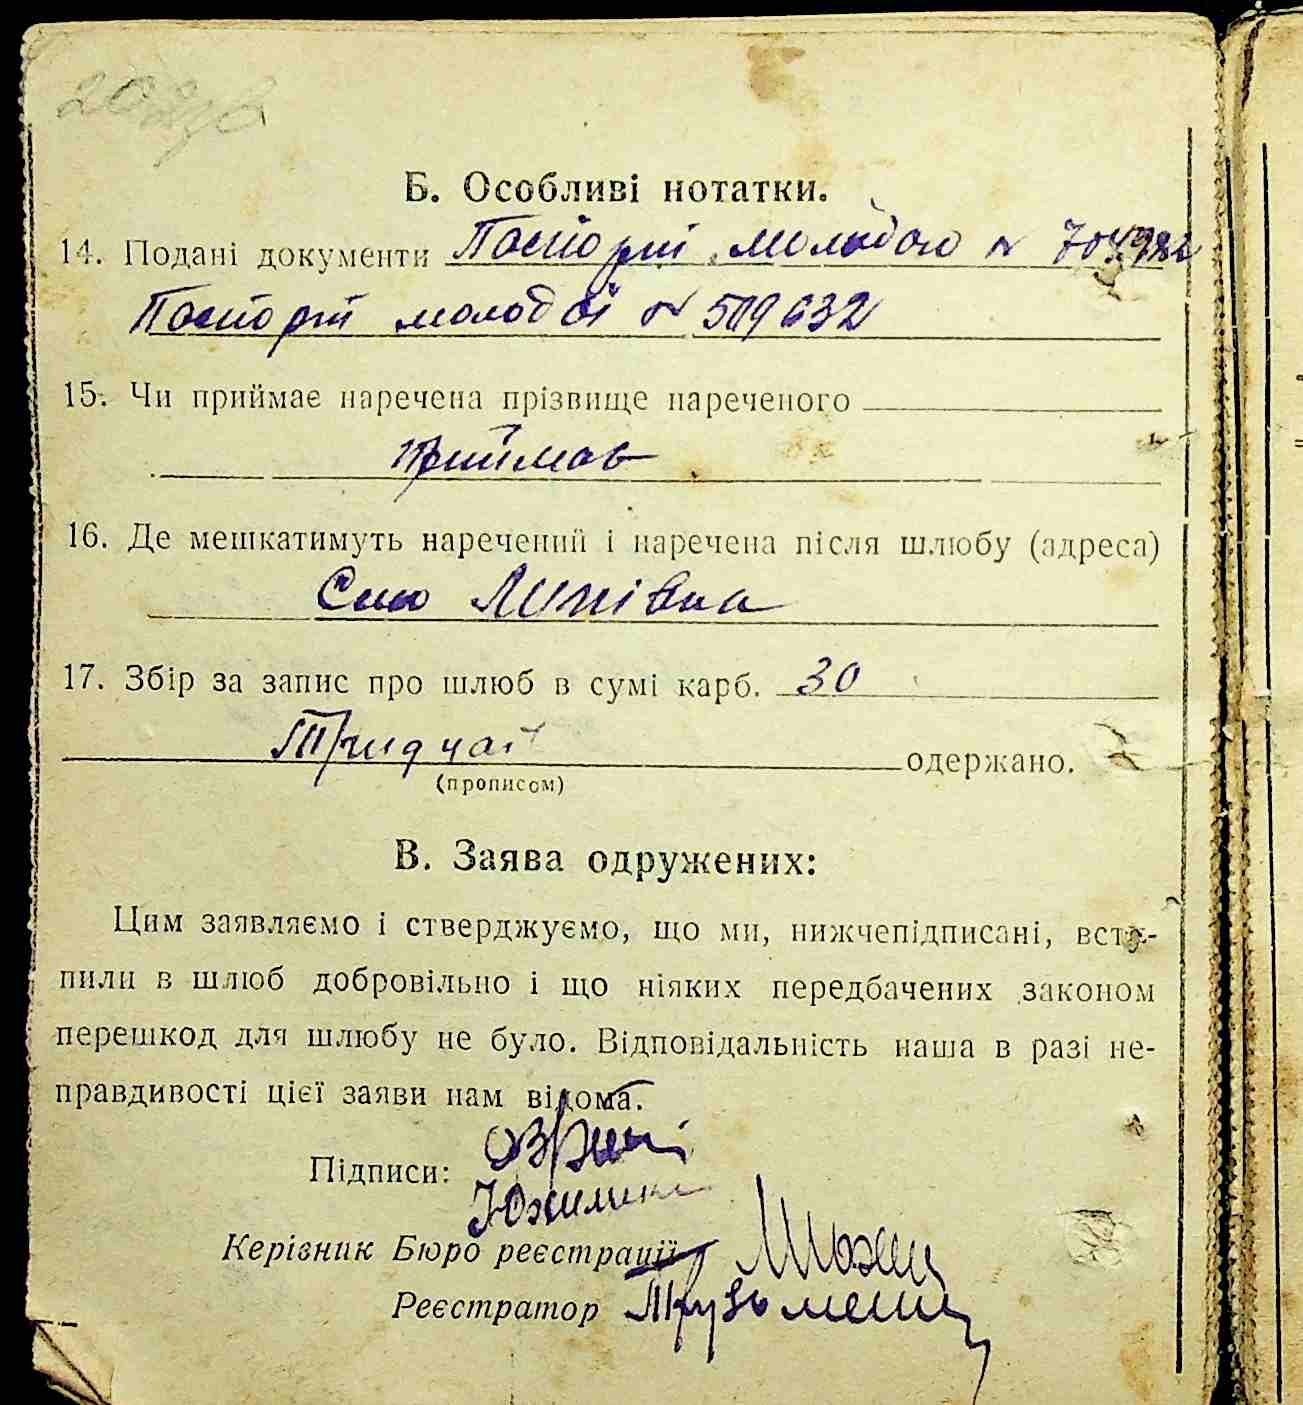 Б. Особливі нотатки.
14. Подані документи Паспорт молодого №
Паспорт молодої № 509632
15. Чи приймає наречена прізвище нареченого
приймає
16. Де мешкатимуть наречений і наречена після шлюбу (адреса)
Село
17. Збір за запис про шлюб в сумі карб. 30
Тридчать
одержано.
(прописом)
В. Заява одружених:
Цим заявляємо і стверджуємо, що ми, нижчепідписані, всту-
пили в шлюб добровільно і що ніяких передбачених законом
перешкод для шлюбу не було. Відповідальність наша в разі не-
правдивості цієї заяви нам відома.
Підписи:
Керівник Бюро реєстрації
Реєстратор